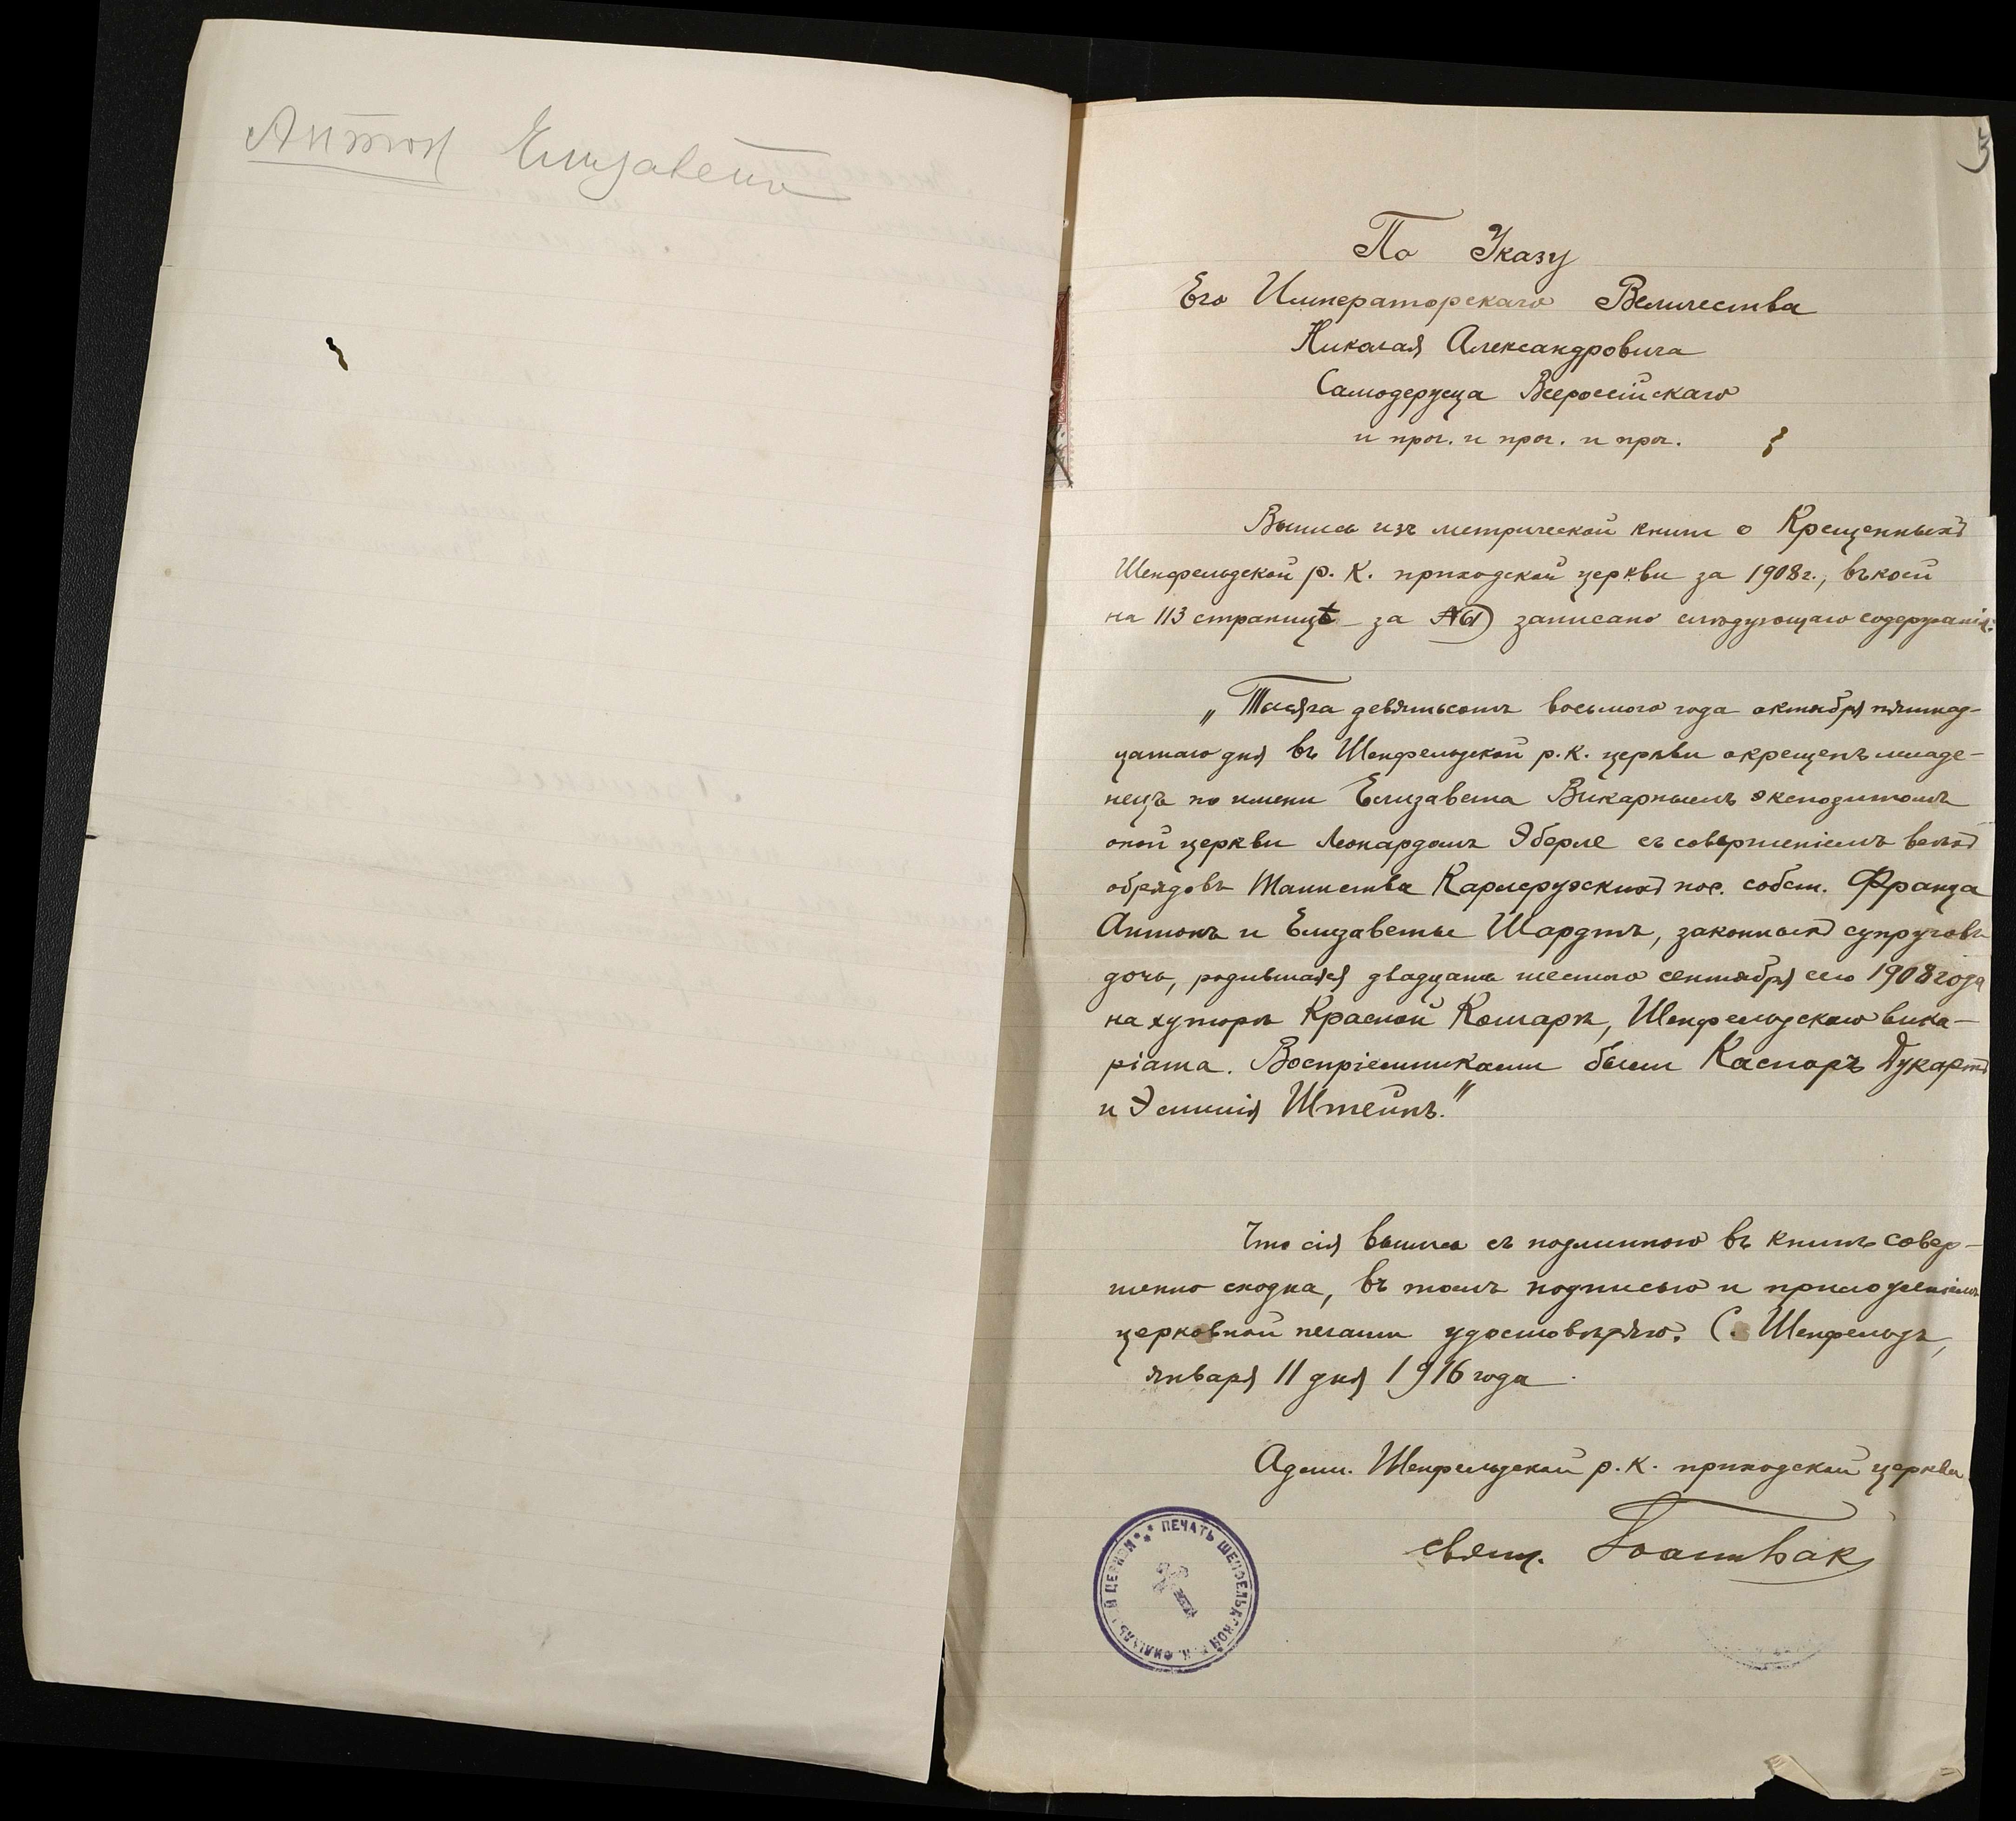 Антон Елизавета
3
По Указу
Его Императорскаго Величества
Николая Александровича
Самодержца Всероссійскаго
и проч. и проч. и проч.
Выпись изъ метрической книги о Крещенныхъ
Шенфельдской р. К. приходской церкви за 1908 г., въ коей
на 113 страницѣ за записано слѣдующаго содержанія:
„Тысяча девятьсотъ восьмого года октября пятнад-
цатаго дня въ Шенфельдской р. к. церкви окрещенъ младе-
нецъ по имени Елизавета Викарнымъ экспозитомъ
оной церкви Леонардомъ Эберле съ совершеніемъ всѣхъ
обрядовъ Таинства Карлсруэскихъ пос. собст. Франца
Антонъ и Елизаветы Шардтъ, законныхъ супруговъ
дочь, родившаяся двадцать шестого сентября сего 1908 года
на хуторѣ Красной Кошарѣ, Шенфельдскаго вика-
ріата. Воспріемниками были Каспаръ Дукартъ
и Эмилія Штейнъ."
Что сія выпись съ подлинною въ книгѣ совер-
шенно сходна, въ томъ подписью и приложеніемъ
церковной печати удостовѣряю. С. Шенфельдъ,
января 11 дня 1916 года.
Адми. Шенфельдской р. к. приходской церкви
свящ.
ПЕЧАТЬ ШЕНФЕЛЬДСКОЙ Р. К. ФИЛІАЛЬНОЙ ЦЕРКВИ